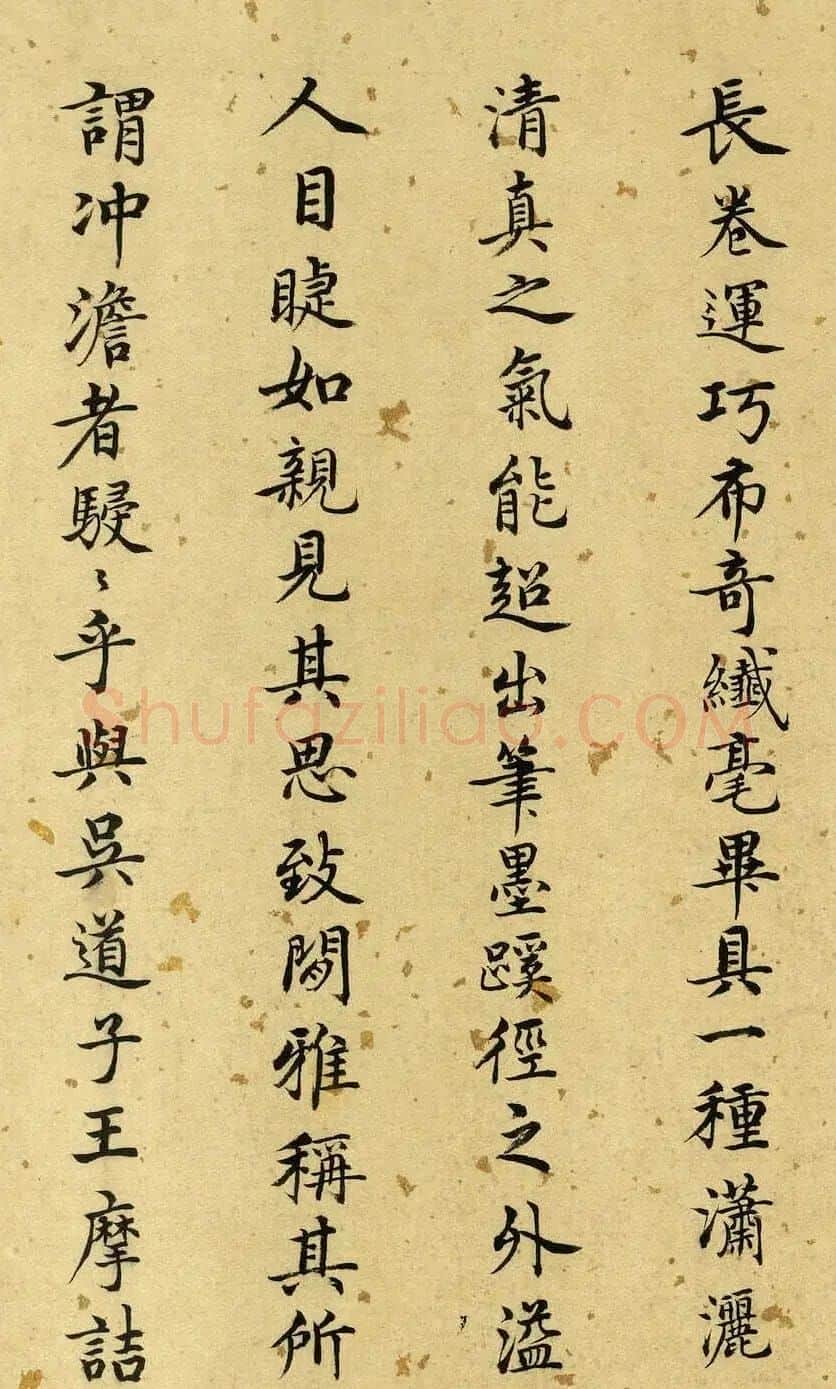 長卷運巧布奇纖毫畢具一種瀟灑
清真之氣能超出筆墨蹊徑之外溢
人目睫如親見其思致閒雅稱其所
謂冲澹者駸〻乎與吳道子王摩詰
Shufaziliao.COM